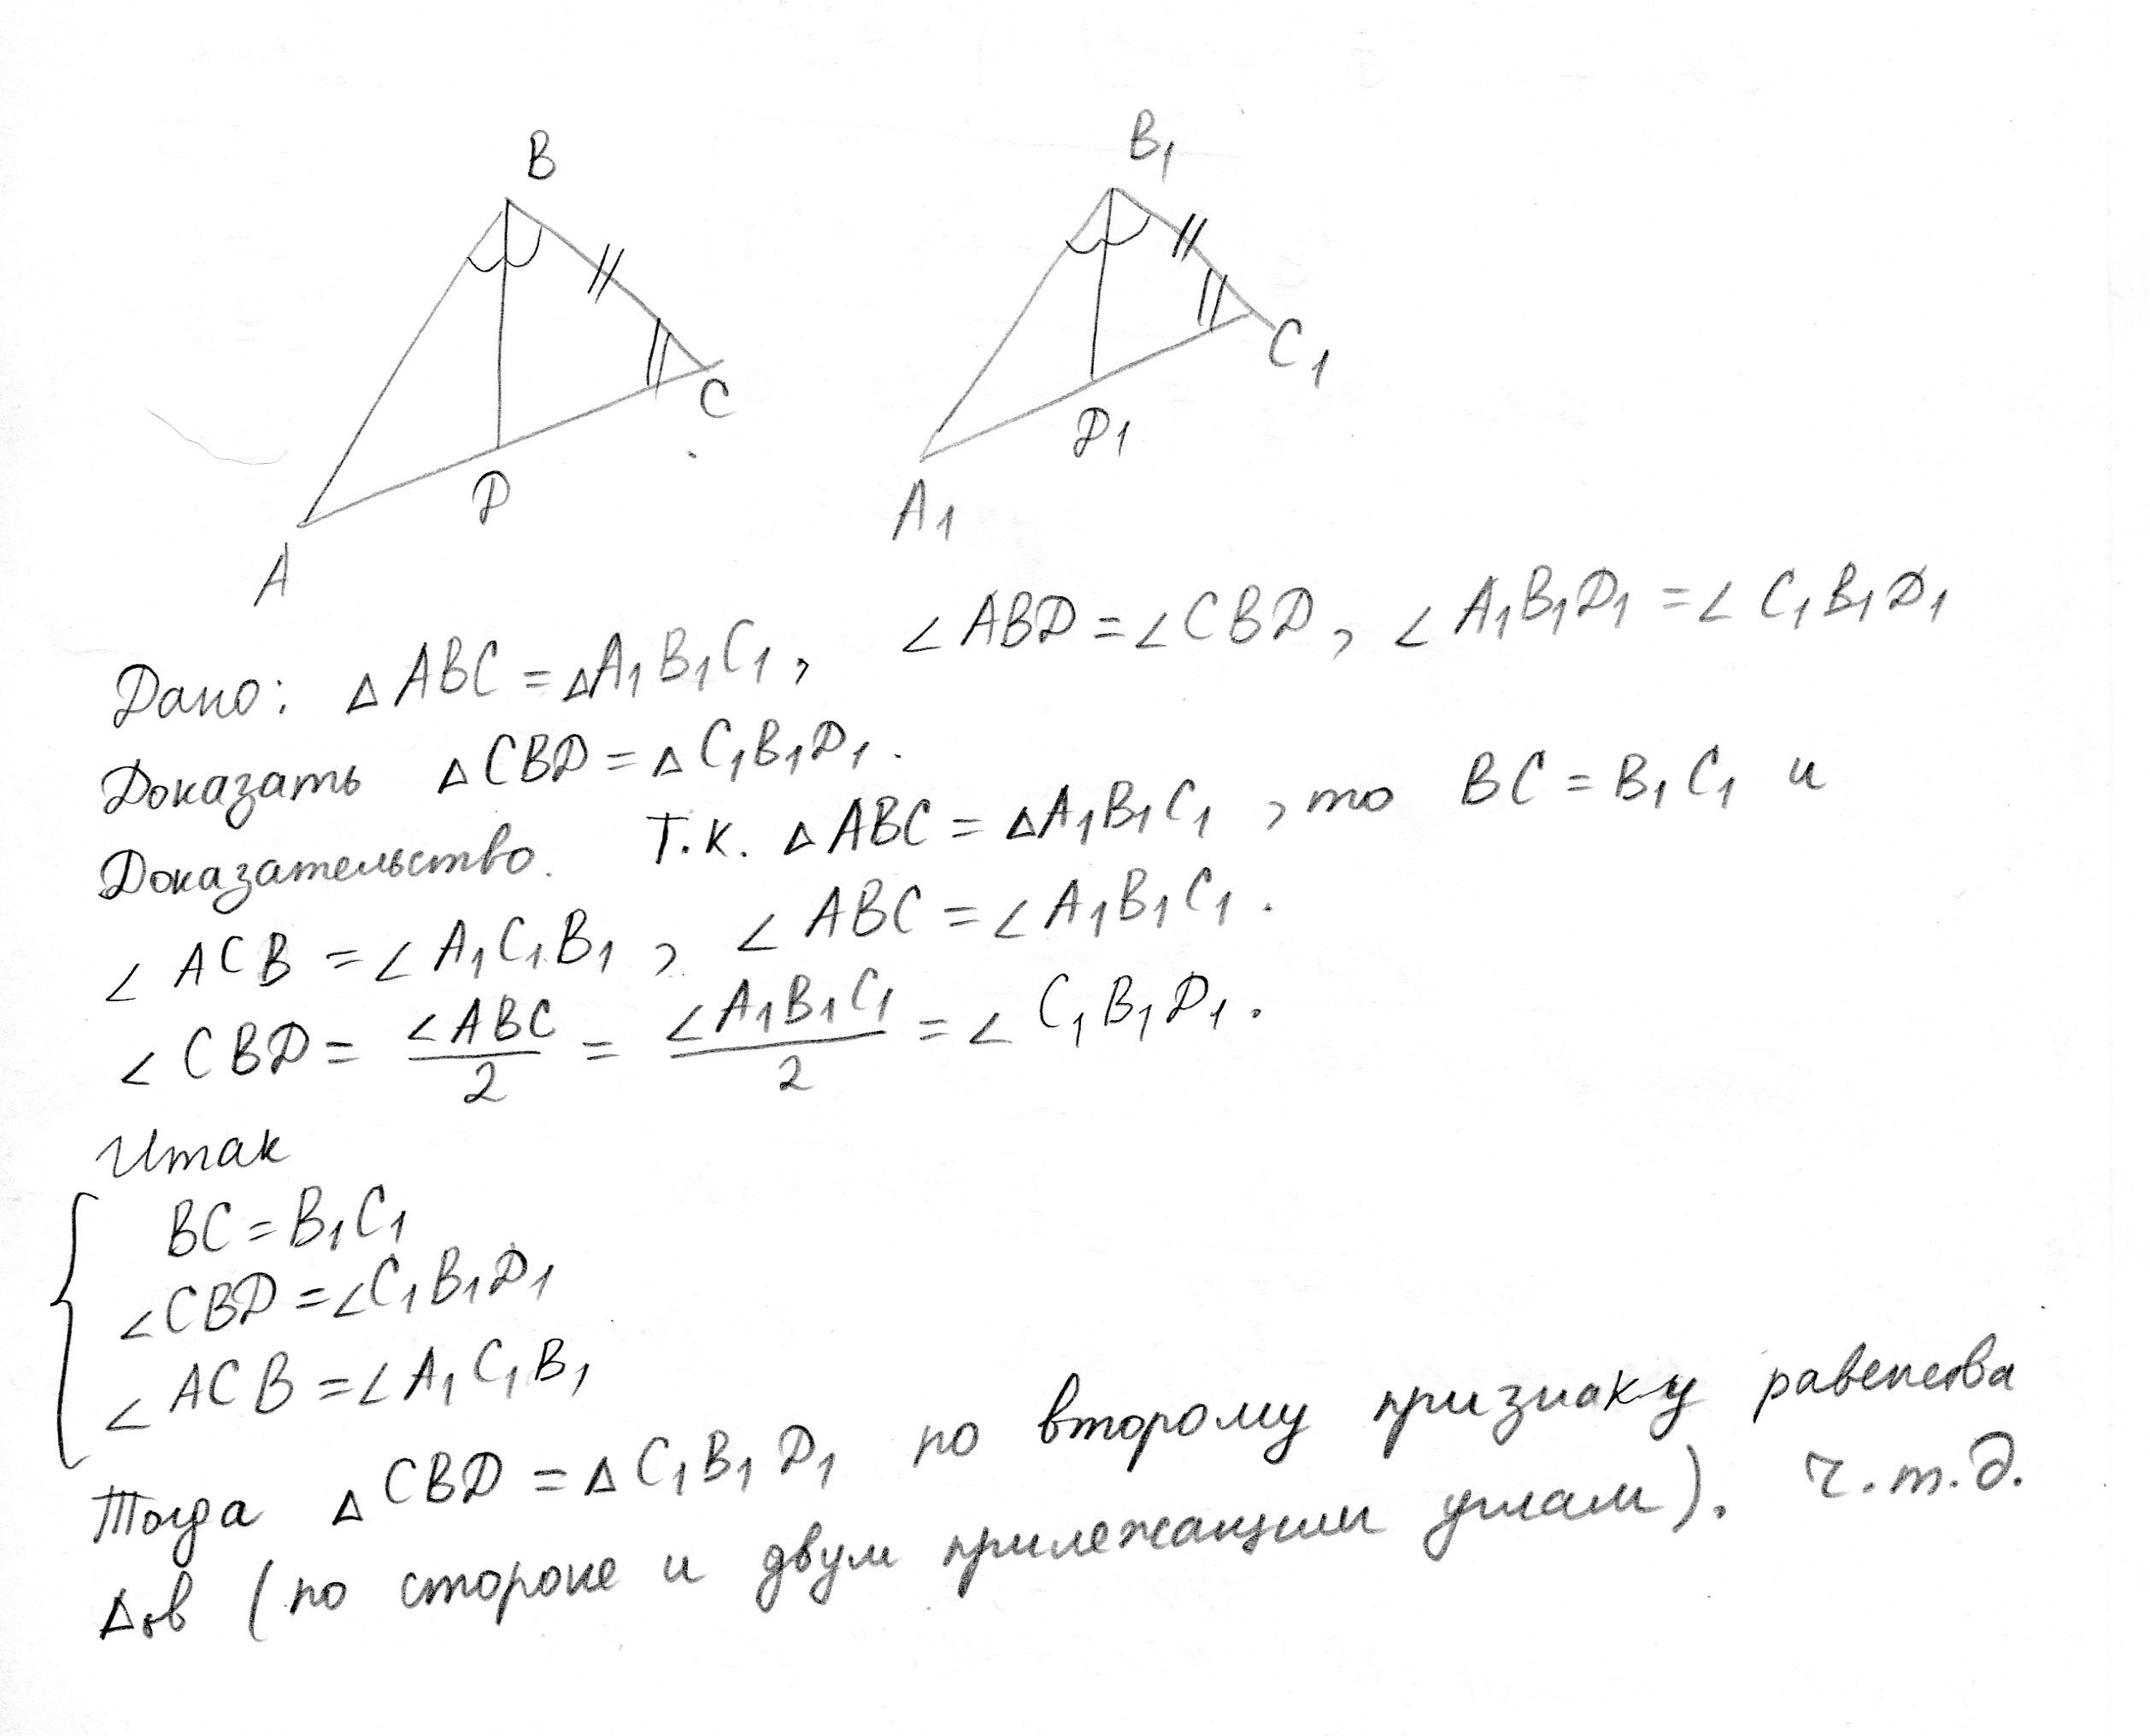 B
B₁
C
C₁
D
D₁
A
A₁
Дано: △ABC = △A₁B₁C₁, ∠ABD = ∠CBD, ∠A₁B₁D₁ = ∠C₁B₁D₁
Доказать △CBD = △C₁B₁D₁.
Доказательство. Т.к. △ABC = △A₁B₁C₁, то BC = B₁C₁ и
∠ACB = ∠A₁C₁B₁, ∠ABC = ∠A₁B₁C₁.
∠CBD = ∠ABC/2 = ∠A₁B₁C₁/2 = ∠C₁B₁D₁.
Итак
{ BC = B₁C₁
∠CBD = ∠C₁B₁D₁
∠ACB = ∠A₁C₁B₁
Тогда △CBD = △C₁B₁D₁ по второму признаку равенства
△ов (по стороне и двум прилежащим углам). Ч.т.д.